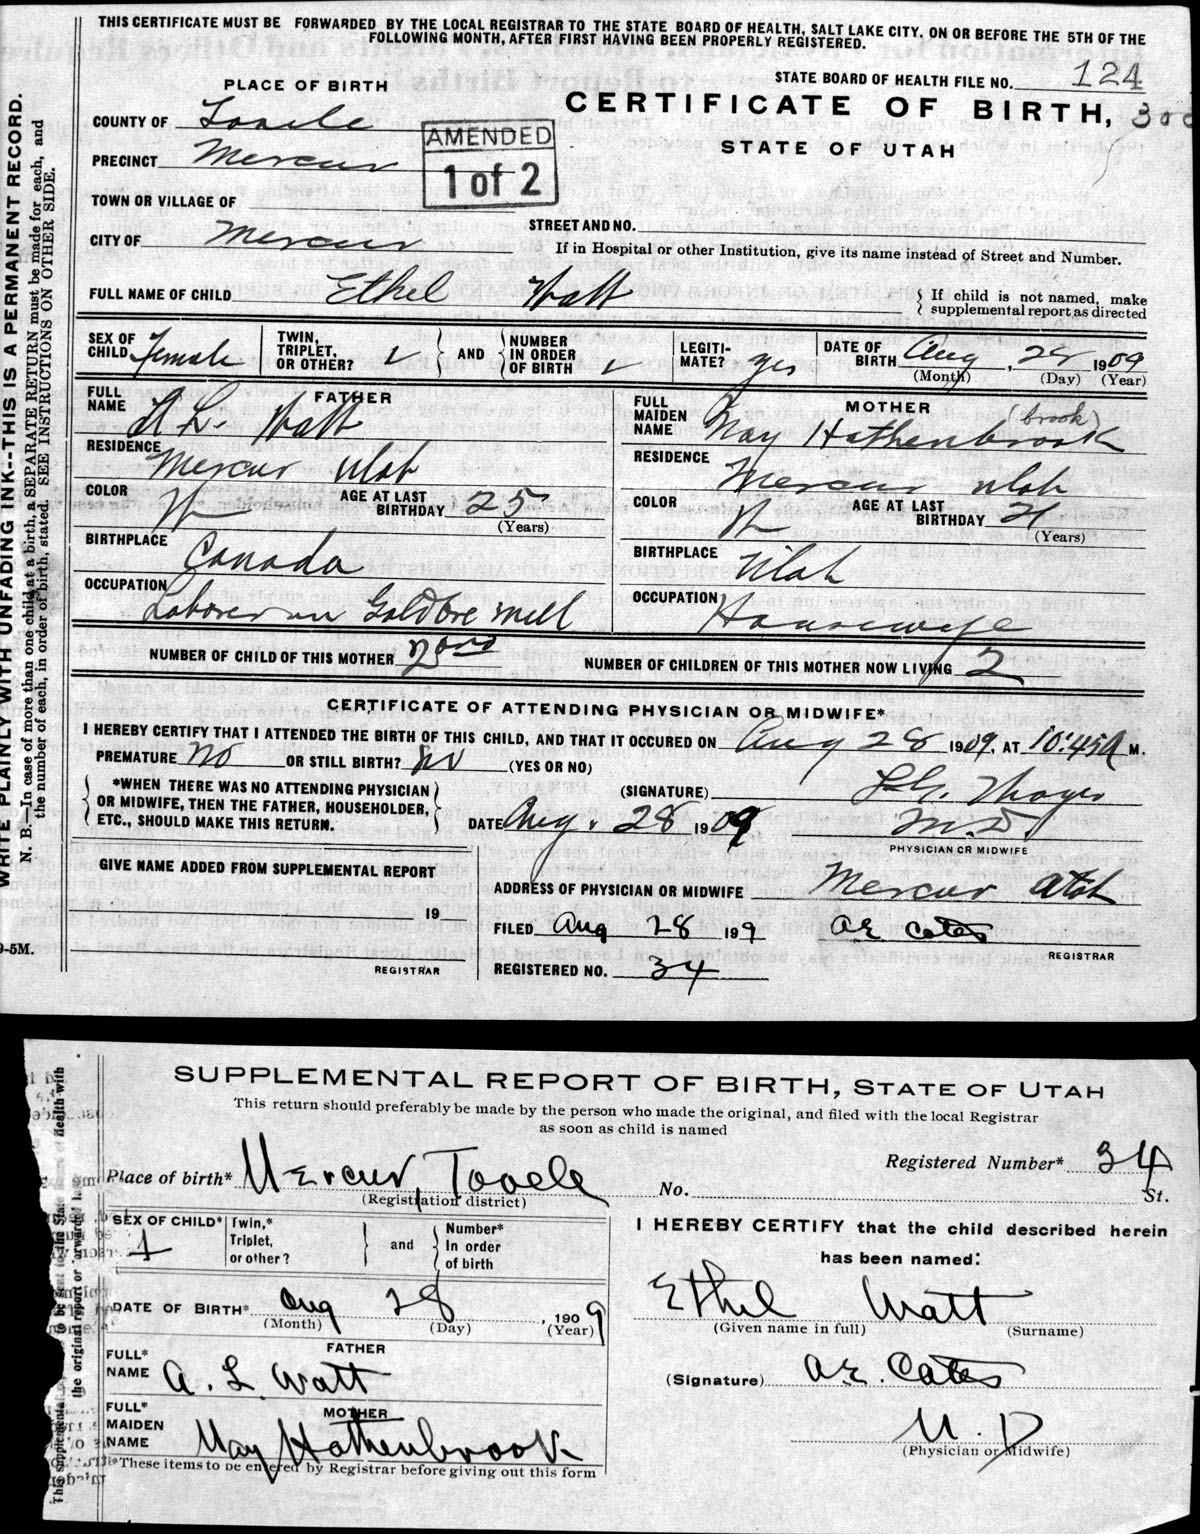 THIS CERTIFICATE MUST BE FORWARDED BY THE LOCAL REGISTRAR TO THE STATE BOARD OF HEALTH, SALT LAKE CITY, ON OR BEFORE THE 5TH OF THE
FOLLOWING MONTH, AFTER FIRST HAVING BEEN PROPERLY REGISTERED.
WRITE PLAINLY WITH UNFADING INK--THIS IS A PERMANENT RECORD.
N. B.—In case of more than one child at a birth, a SEPARATE RETURN must be made for each, and
the number of each, in order of birth, stated. SEE INSTRUCTIONS ON OTHER SIDE.
STATE BOARD OF HEALTH FILE NO. 124
PLACE OF BIRTH
CERTIFICATE OF BIRTH, 300
STATE OF UTAH
COUNTY OF Tooele
AMENDED
1 of 2
PRECINCT Mercur
TOWN OR VILLAGE OF
STREET AND NO.
CITY OF Mercur
If in Hospital or other Institution, give its name instead of Street and Number.
FULL NAME OF CHILD Ethel Watt
If child is not named, make
supplemental report as directed
SEX OF CHILD Female
TWIN, TRIPLET, OR OTHER?
AND
NUMBER IN ORDER OF BIRTH
LEGITIMATE? yes
DATE OF BIRTH Aug, 28 1909
(Month) (Day) (Year)
FATHER
FULL NAME L. Watt
RESIDENCE Mercur Utah
COLOR W
AGE AT LAST BIRTHDAY 25
(Years)
BIRTHPLACE Canada
OCCUPATION Laborer in Gold Ore Mill
MOTHER
(brook)
FULL MAIDEN NAME May Hothenbrook
RESIDENCE Mercur Utah
COLOR W
AGE AT LAST BIRTHDAY 21
(Years)
BIRTHPLACE Utah
OCCUPATION Housewife
NUMBER OF CHILD OF THIS MOTHER 2nd
NUMBER OF CHILDREN OF THIS MOTHER NOW LIVING 2
CERTIFICATE OF ATTENDING PHYSICIAN OR MIDWIFE*
I HEREBY CERTIFY THAT I ATTENDED THE BIRTH OF THIS CHILD, AND THAT IT OCCURED ON Aug 28 1909. AT 10:45 A M.
PREMATURE No OR STILL BIRTH? No (YES OR NO)
*WHEN THERE WAS NO ATTENDING PHYSICIAN
OR MIDWIFE, THEN THE FATHER, HOUSEHOLDER,
ETC., SHOULD MAKE THIS RETURN.
(SIGNATURE)
DATE Aug. 28 1909
M.D.
PHYSICIAN OR MIDWIFE
GIVE NAME ADDED FROM SUPPLEMENTAL REPORT
19
REGISTRAR
9-5M.
ADDRESS OF PHYSICIAN OR MIDWIFE Mercur Utah
FILED Aug 28 199 A E Cates
REGISTRAR
REGISTERED NO. 34
SUPPLEMENTAL REPORT OF BIRTH, STATE OF UTAH
This return should preferably be made by the person who made the original, and filed with the local Registrar
as soon as child is named
Place of birth* Mercur, Tooele
(Registration district)
Registered Number* 34
No. St.
SEX OF CHILD* 1
Twin,* Triplet, or other?
and
Number* In order of birth
DATE OF BIRTH* Aug 28, 1909
(Month) (Day) (Year)
FATHER
FULL* NAME A. L. Watt
MOTHER
FULL* MAIDEN NAME May Hothenbrook
*These items to be entered by Registrar before giving out this form
I HEREBY CERTIFY that the child described herein
has been named:
Ethel Watt
(Given name in full) (Surname)
(Signature) A.E. Cates
M. D
(Physician or Midwife)